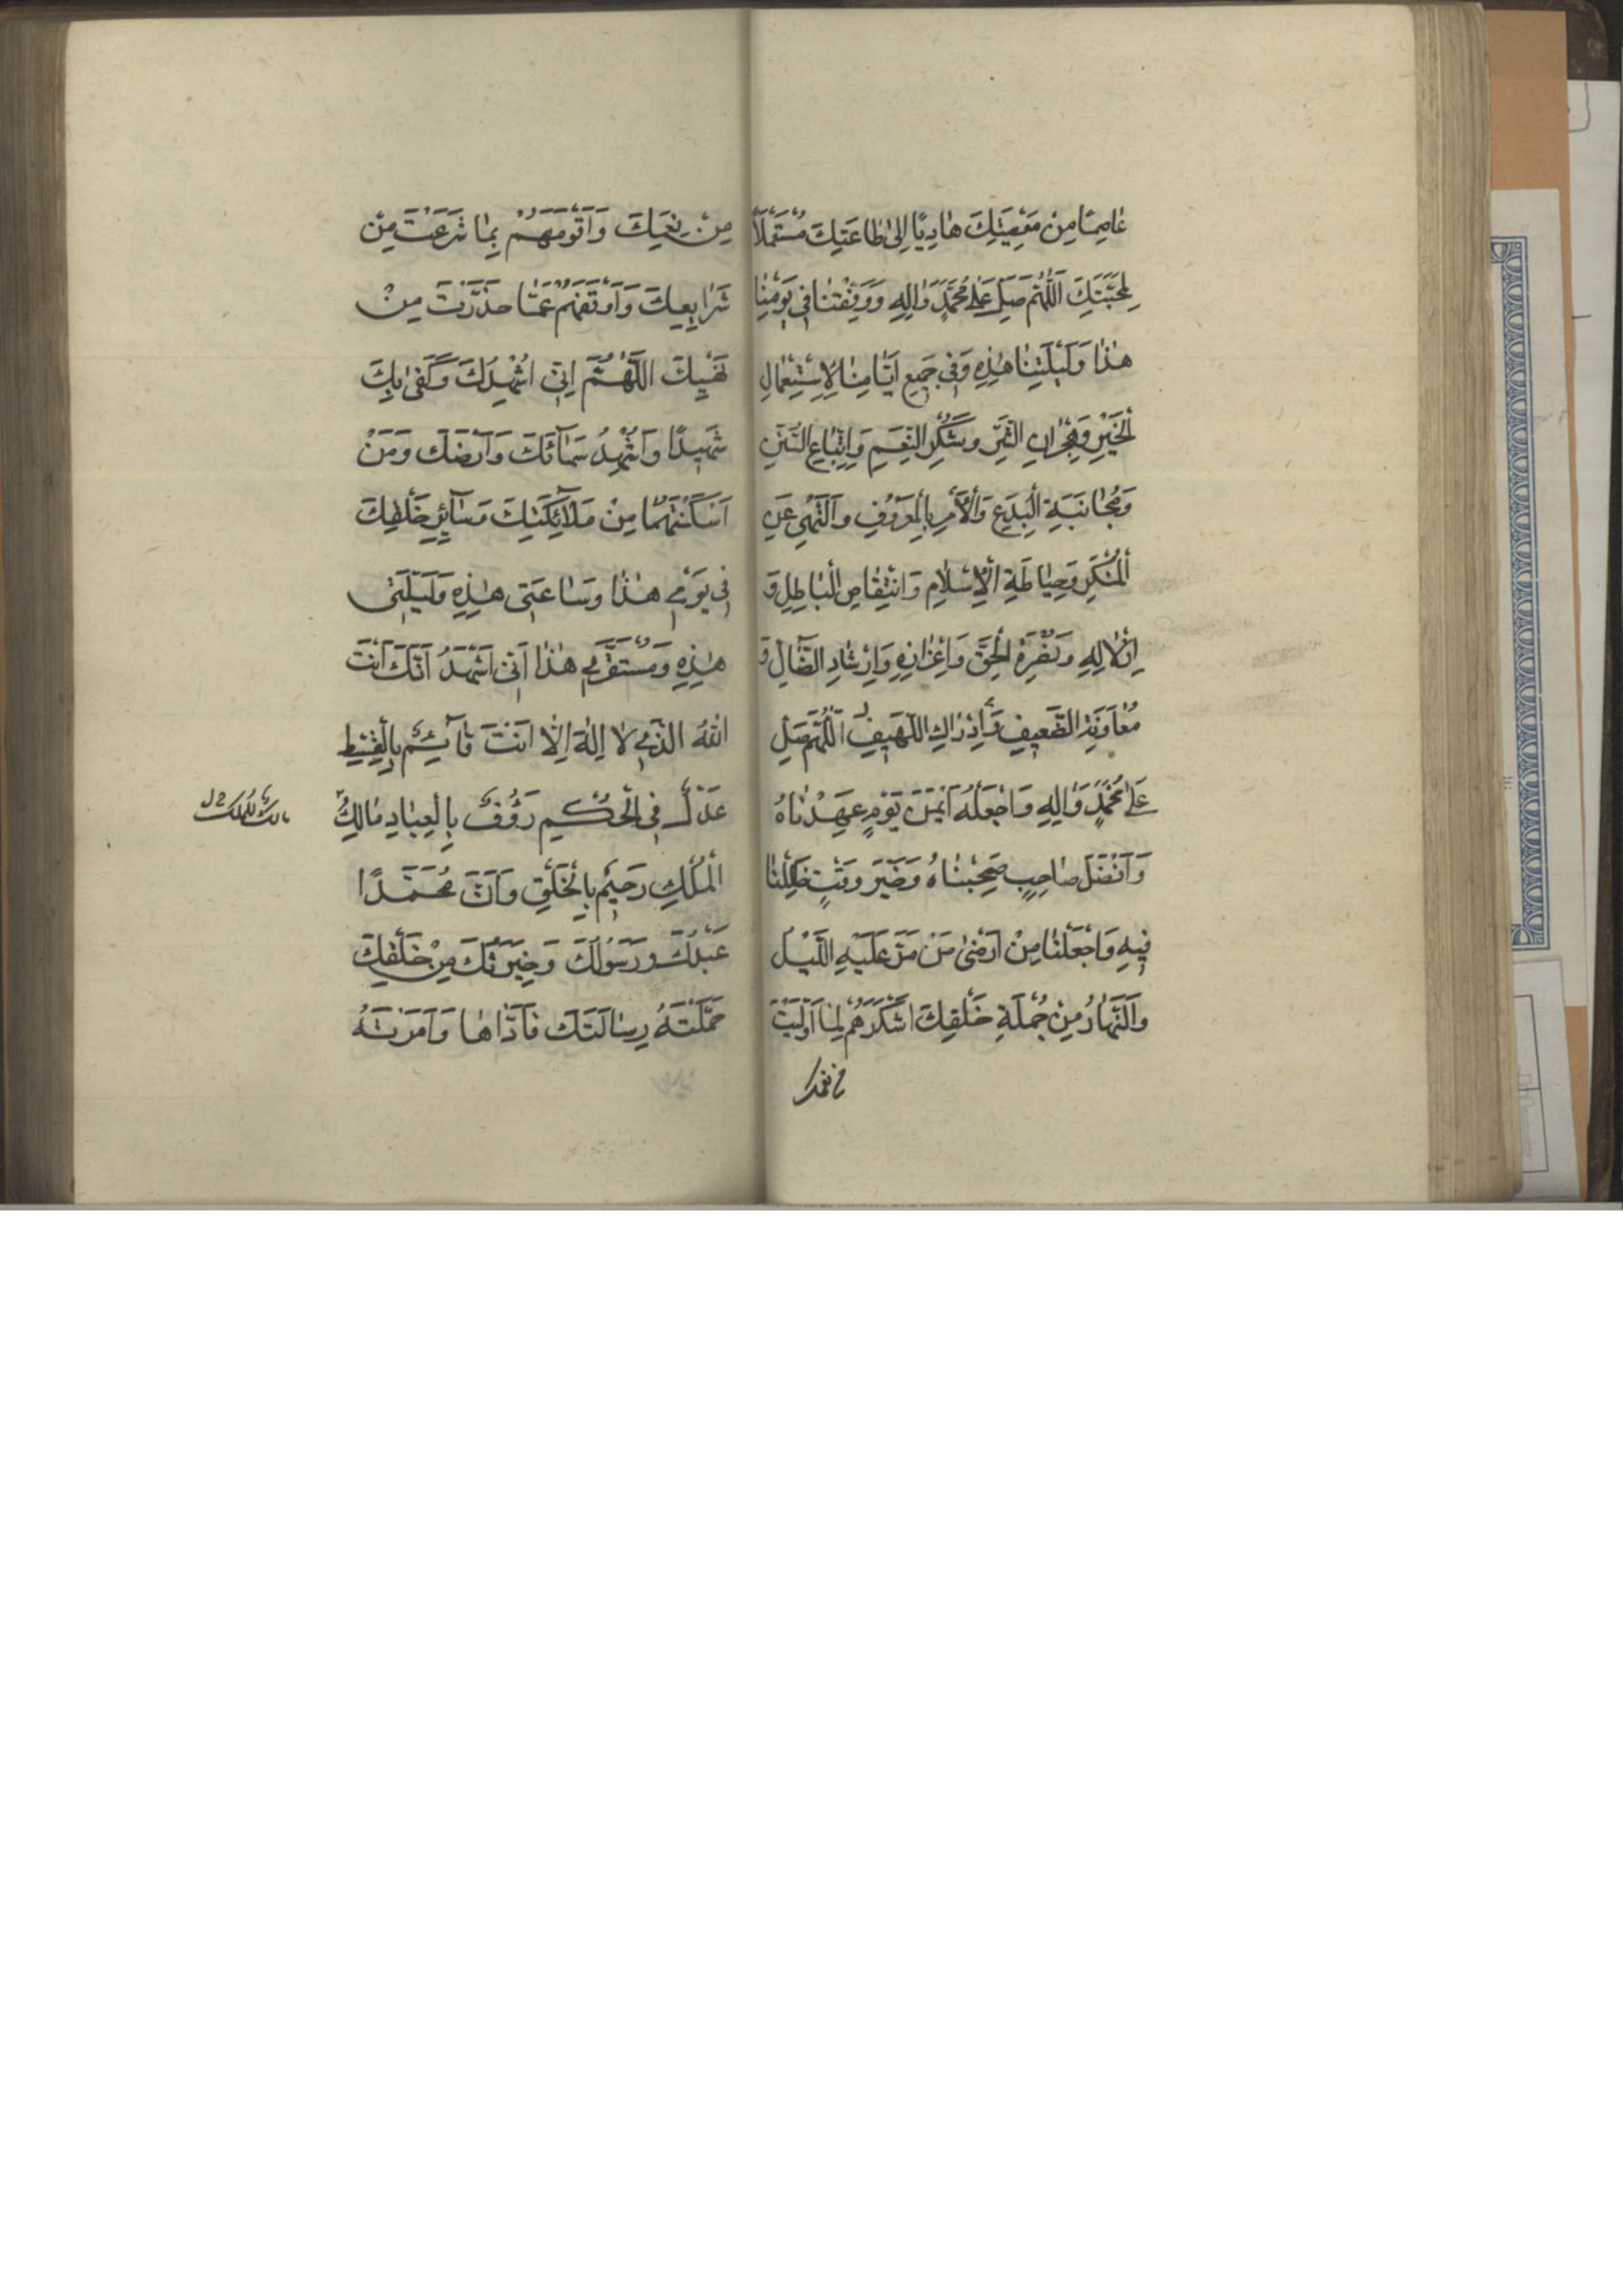 عٰاصِمًا مِنْ مَعْصِيَتِكَ هٰادِيًا اِلىٰ طٰاعَتِكَ مُسْتَعْمَلًا
لِمَحَبَّتِكَ اَللّٰهُمَّ صَلِّ عَلىٰ مُحَمَّدٍ وَاٰلِهِ وَوَفِّقْنٰا فى يَوْمِنٰا
هٰذٰا وَلَيْلَتِنٰا هٰذِهِ وَفى جَميعِ اَيّٰامِنٰا لِاِسْتِعْمٰالِ
الْخَيْرِ وَهِجْرٰانِ الشَّرِّ وَشُكْرِ النِّعَمِ وَاِتِّبٰاعِ السُّنَنِ
وَمُجٰانَبَةِ الْبِدَعِ وَالْاَمْرِ بِالْمَعْرُوفِ وَالنَّهْىِ عَنِ
الْمُنْكَرِ وَحِيٰاطَةِ الْاِسْلٰامِ وَانْتِقٰاصِ الْبٰاطِلِ وَ
اِذْلٰالِهِ وَنُصْرَةِ الْحَقِّ وَاِعْزٰازِهِ وَاِرْشٰادِ الضّٰالِّ وَ
مُعٰاوَنَةِ الضَّعيفِ وَاِدْرٰاكِ اللَّهيفِ اَللّٰهُمَّ صَلِّ
عَلىٰ مُحَمَّدٍ وَاٰلِهِ وَاجْعَلْهُ اَيْمَنَ يَوْمٍ عَهِدْنٰاهُ
وَاَفْضَلَ صٰاحِبٍ صَحِبْنٰاهُ وَخَيْرَ وَقْتٍ ظَلِلْنٰا
فيهِ وَاجْعَلْنٰا مِنْ اَرْضىٰ مَنْ مَرَّ عَلَيْهِ اللَّيْلُ
وَالنَّهٰارُ مِنْ جُمْلَةِ خَلْقِكَ اَشْكَرَهُمْ لِمٰا اَوْلَيْتَ
مِنْ نِعَمِكَ وَاَقْوَمَهُمْ بِمٰا شَرَعْتَ مِنْ
شَرٰايِعِكَ وَاَوْقَفَهُمْ عَمّٰا حَذَّرْتَ مِنْ
نَهْيِكَ اَللّٰهُمَّ اِنّى اُشْهِدُكَ وَكَفىٰ بِكَ
شَهيدًا وَاُشْهِدُ سَمٰائَكَ وَاَرْضَكَ وَمَنْ
اَسْكَنْتَهُمٰا مِنْ مَلٰائِكَتِكَ وَسٰائِرِ خَلْقِكَ
فى يَوْمى هٰذٰا وَسٰاعَتى هٰذِهِ وَلَيْلَتى
هٰذِهِ وَمُسْتَقَرّى هٰذٰا اَنّى اَشْهَدُ اَنَّكَ اَنْتَ
اللّٰهُ الَّذى لٰا اِلٰهَ اِلّٰا اَنْتَ قٰائِمٌ بِالْقِسْطِ
عَدْلٌ فِى الْحُكْمِ رَؤُفٌ بِالْعِبٰادِ مٰالِكُ
الْمُلْكِ رَحيمٌ بِالْخَلْقِ وَاَنَّ مُحَمَّدًا
عَبْدُكَ وَرَسُولُكَ وَخِيَرَتُكَ مِنْ خَلْقِكَ
حَمَّلْتَهُ رِسٰالَتَكَ فَاَدّٰاهٰا وَاَمَرْتَهُ
مالك للملك
من نعمك